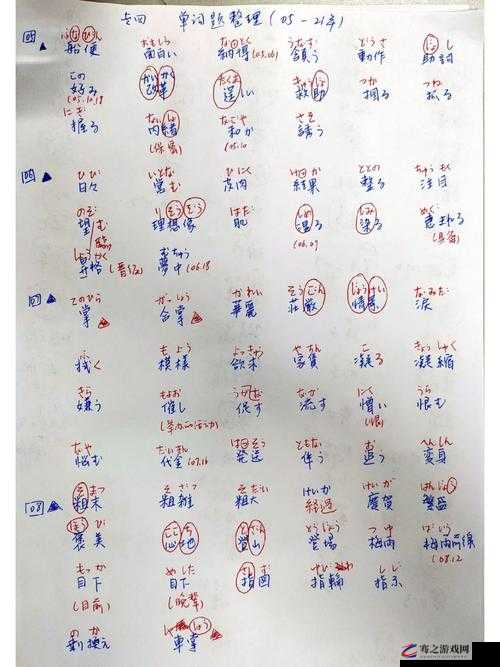 专四 单词题整理(05-21年)
05 ふなびん おもしろ なっとく(05.06) うなず どうさ じょし
船便 面白い 納得 頷う 動作 助詞
この かいかく たくま きゅうじょ つか つね
好み(05.10,18) 改革 逞しい 救助 掴る 抓る
にぎ ないしょ なごや さそ
握る 内緒(保密) 和か(05.10) 誘う
06 ひび いとな ひにく けっか ととの ちゅうもく
日々 営む 皮肉 結果 整る 注目
のぞ りそうぞう はだ しめ しみ めぐ
望む 理想像 肌 湿る(06.09) 染る 恵まれる
しょうかく むちゅう
昇格(晋级) 夢中(06.18)
07 てのひら がっしょう かれい そうごん じょうけい なみだ
掌 合掌 華麗 荘厳 情景 涙
もよう よっきゅう やちん こ ぎょうしゅく
拭く 模様 欲求 家賃 凝る 凝縮
きら もよお うなが なが にく うら
嫌う 催し 促す 流す 憎い(恨) 恨む
なや だいきん はっそう ともな お へんしん
悩む 代金(07.16) 発送 伴う 追う 変身
08 そまつ そざつ そだい けいか けいが はんじょう
粗末 粗雑 粗大 経過 慶賀 繁盛
ほうび ここち とざん とうじょう つゆ ばいう
褒美 心地 登山 登場 梅雨 梅雨前線(08.12)
もっか めした さしず ゆびわ しじ
目下(目前) 目下(晚辈) 指図 指輪 指示
のか しゃしょう
乗り換え 車掌
客之游戏网